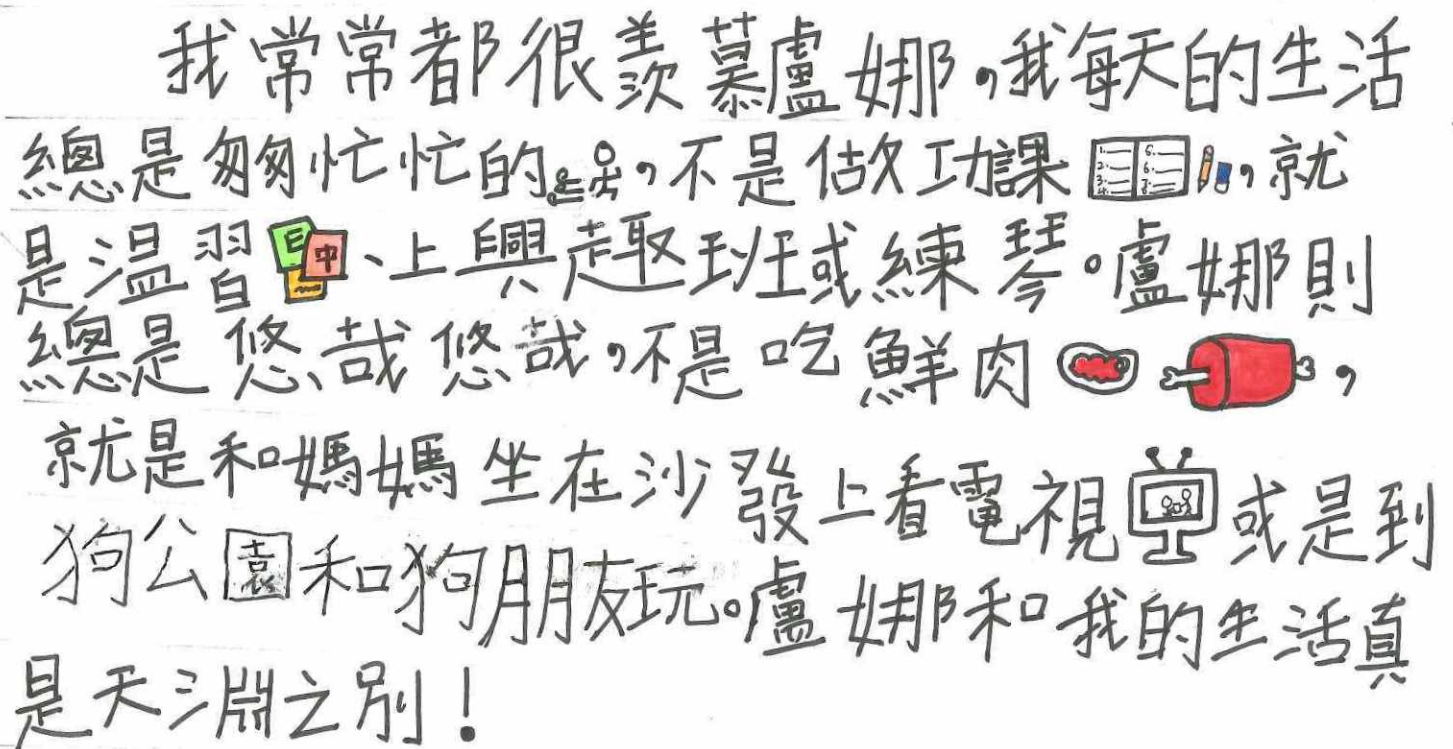 我常常都很羨慕盧娜,我每天的生活
總是匆匆忙忙的,不是做功課,就
是溫習、上興趣班或練琴。盧娜則
總是悠哉悠哉,不是吃鮮肉,
就是和媽媽坐在沙發上看電視或是到
狗公園和狗朋友玩。盧娜和我的生活真
是天淵之別!